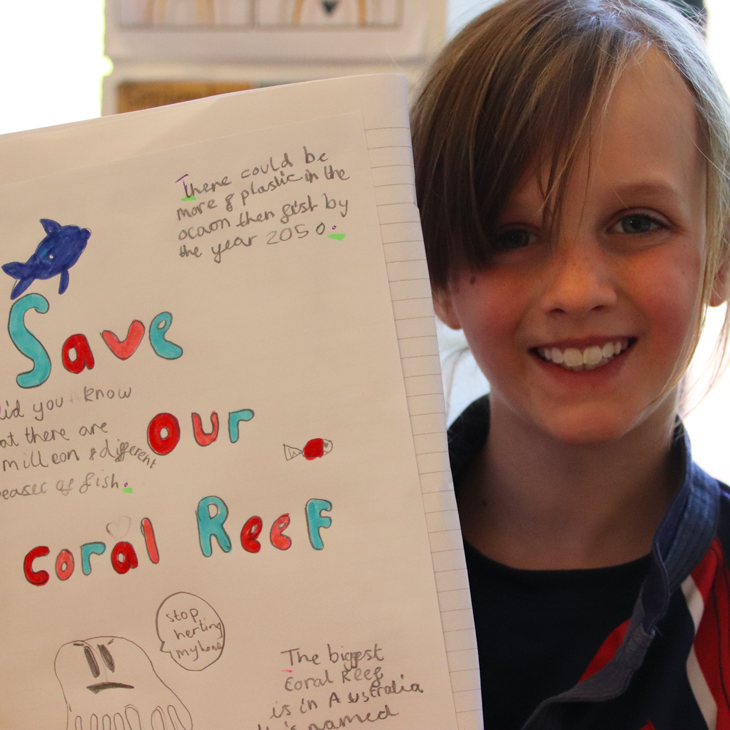 There could be
more & plastic in the
ocaon then fish by
the year 2050.
Save
did you know
at there are
milleon & different
of fish.
our
coral Reef
stop
herting
my home
The biggest
Coral Reef
is in Australia
is named